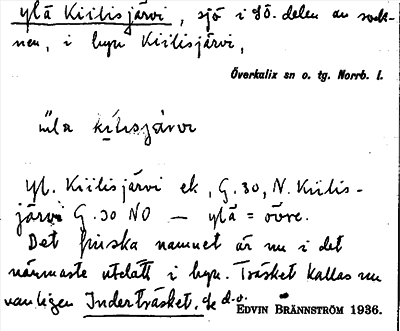 ylä Kiilisjärvi, sjö i SÖ. delen av sock-
nen, i byn Kiilisjärvi,
Överkalix sn o. tg. Norrb. l.
üla kilisjärvi
Yl. Kiilisjärvi ek, G.30, N. Kiilis-
järvi G.30 NO — ylä = övre.
Det finska namnet är nu i det
närmaste utdött i byn. Träsket kallas nu
vanligen Inderträsket. d.o.
EDVIN BRÄNNSTRÖM 1936.